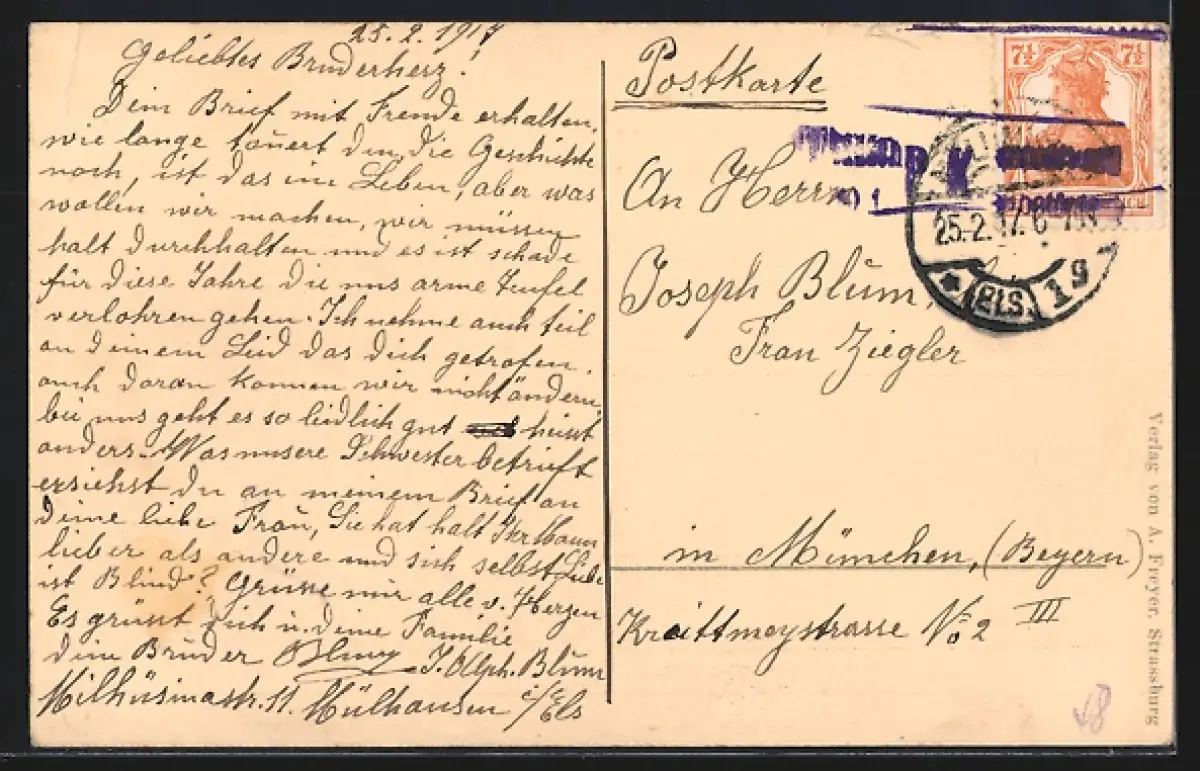 25.2.1917
Geliebtes Bruderherz!
Dein Brief mit Freude erhalten,
wie lange tauert den die Geschichte
noch, ist das ein Leben, aber was
wollen wir machen, wir müssen
halt durchhalten und es ist schade
für diese Jahre die uns arme Teufel
verlohren gehen. Ich nehme auch teil
an deinem Leid das dich getrofen,
auch daran können wir nicht ändern,
bei uns geht es so leidlich gut heisst
anders. Was unsere Schwester betrifft
ersiehst du an meinem Brief an
deine liebe Frau, Sie hat halt Ihr Mann
lieber als andere und sich selbst Liebe
ist Blind? Grüsse mir alle v. Herzen
Es grüsst dich u. deine Familie
dein Bruder J. Alph. Blum
11 Mülhausen i/Els
Postkarte
An Herrn
Joseph Blum
Frau Ziegler
in München, (Beyern)
Kraittmeystrasse No 2 III
7½ 7½
25.2.17.6-7
(ELS.) 19
P. K.
Verlag von A. Freyer, Strassburg